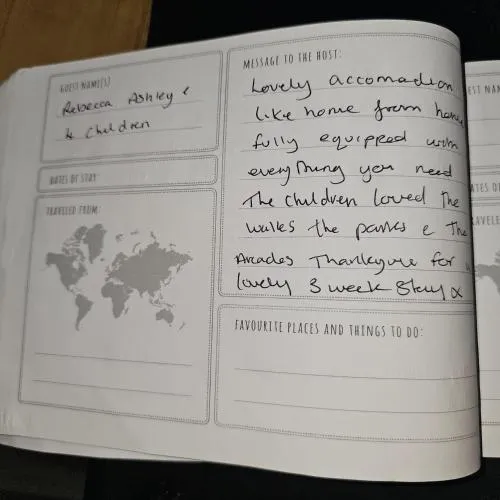 GUEST NAME(S)
Rebecca Ashley &
4 Children
DATES OF STAY:
TRAVELED FROM:
MESSAGE TO THE HOST:
Lovely accomadion
like home from home
fully equipped with
everything you need
The children loved the
walks the parks & The
Arcades Thankyou for
lovely 3 week Stay x
FAVOURITE PLACES AND THINGS TO DO: